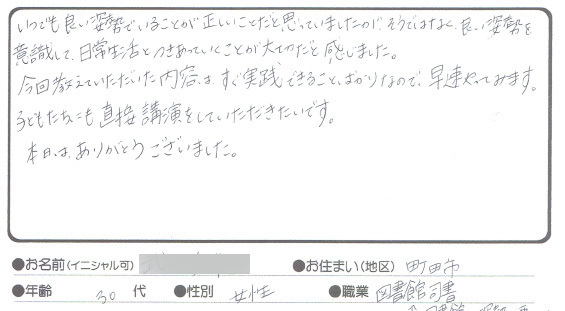 いつでも良い姿勢でいることが正しいことだと思っていましたが、そうではなく、良い姿勢を
意識して、日常生活とつきあっていくことが大切だと感じました。
今回教えていただいた内容は、すぐ実践できることばかりなので、早速やってみます。
子どもたちにも直接講演をしていただきたいです。
本日は、ありがとうございました。
●お名前(イニシャル可) ●お住まい(地区) 町田市
●年齢 30 代 ●性別 女性 ●職業 図書館司書